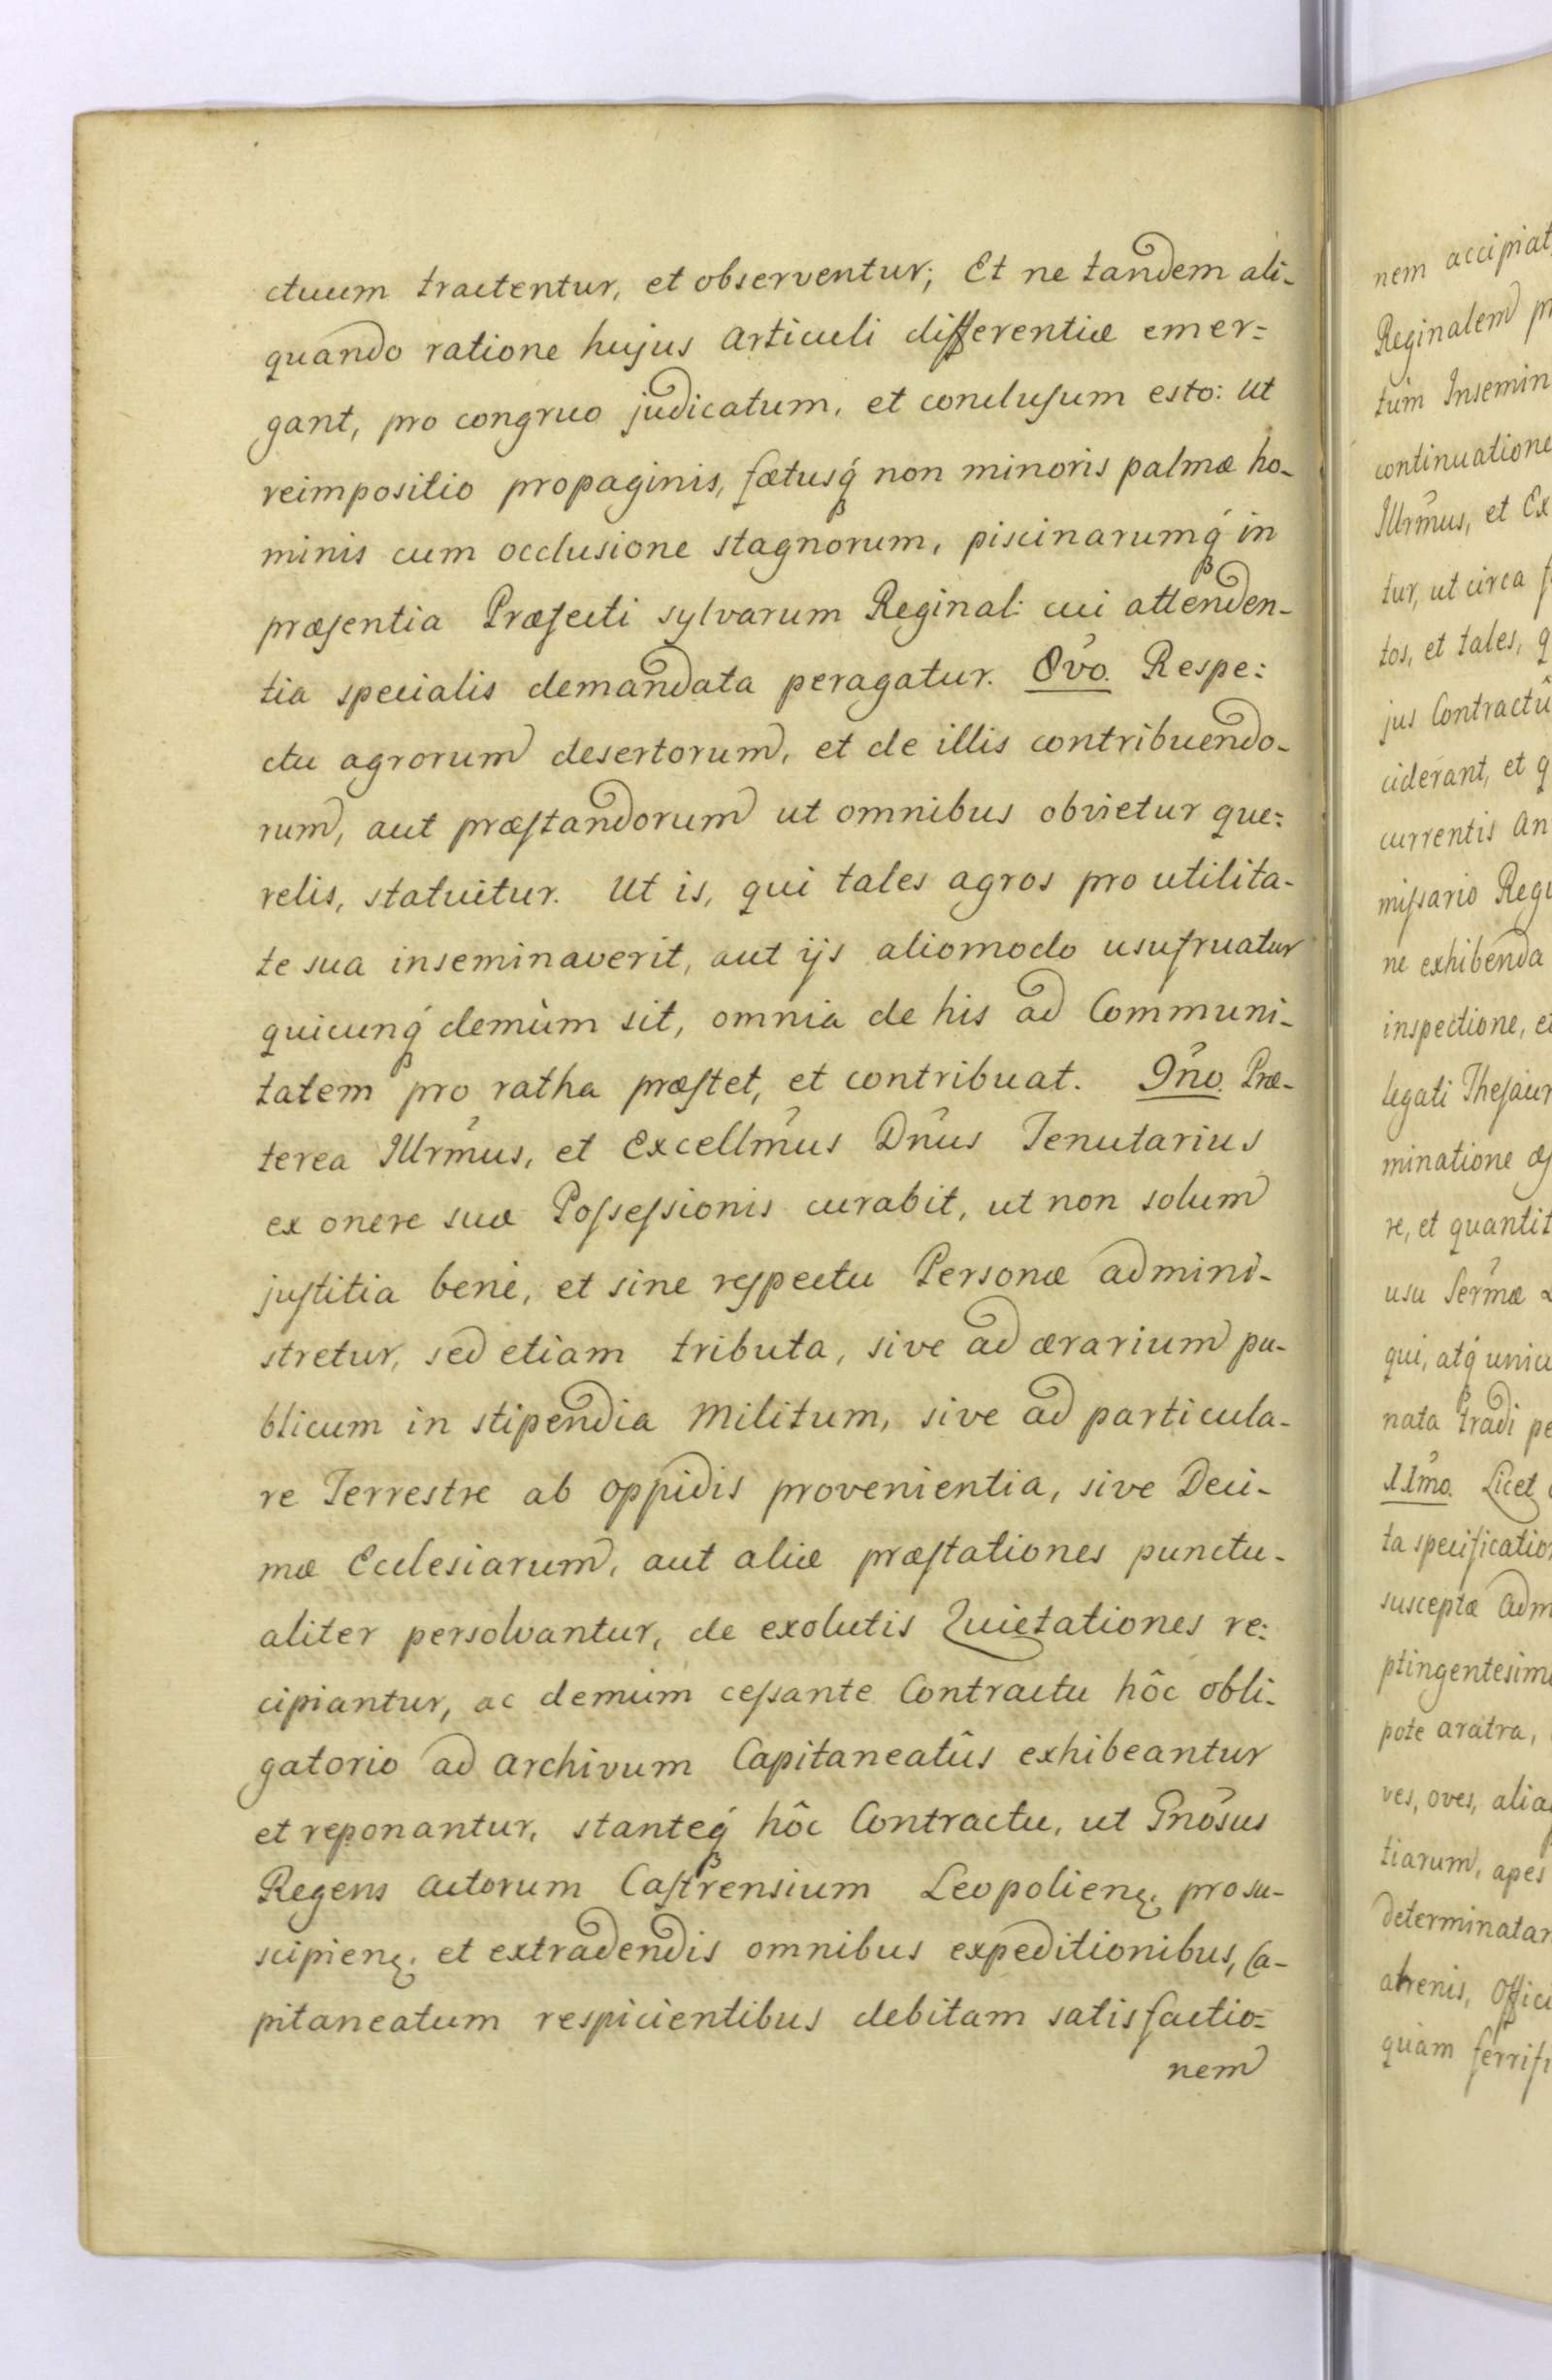 ctuum tractentur, et observentur; Et ne tandem ali-
quando ratione hujus Articuli differentiæ emer=
gant, pro congruo judicatum, et conclusum esto: Ut
reimpositio propaginis, fætusq́ non minoris palmæ ho-
minis cum occlusione stagnorum, piscinarumq́ in
præsentia Præfecti sylvarum Reginal: cui attenden-
tia specialis demandata peragatur. 8vo. Respe:
ctu agrorum desertorum, et de illis contribuendo-
rum, aut præstandorum ut omnibus obvietur que:
relis, statuitur. Ut is, qui tales agros pro utilita-
te sua inseminaverit, aut ijs aliomodo usufruatur
quicunq́ demùm sit, omnia de his ad Communi-
tatem pro ratha præstet, et contribuat. 9no. Præ-
terea Illrmus, et Excellmus Dnus Tenutarius
ex onere suæ Possessionis curabit, ut non solum
justitia benè, et sine respectu Personæ admini-
stretur, sed etiam tributa, sive ad ærarium pu-
blicum in stipendia Militum, sive ad particula-
re Terrestre ab oppidis provenientia, sive Deci-
mæ Ecclesiarum, aut aliæ præstationes punctu-
aliter persolvantur, de exolutis Quietationes re:
cipiantur, ac demùm cessante Contractu hôc obli-
gatorio ad Archivum Capitaneatûs exhibeantur
et reponantur, stanteq́ hôc Contractu, ut Gnosus
Regens Actorum Castrensium Leopolien: pro su-
scipien: et extradendis omnibus expeditionibus, Ca-
pitaneatum respicientibus debitam satisfactio=
nem
nem accipiat
Reginalem
tùm Insemin
continuatione
Illrmus, et Ex
tur, ut circa
tos, et tales, q
jus Contractû
ciderant, et q
currentis An
missario Regi
ne exhibenda
inspectione, et
legati Thesaur
minatione
re, et quantit
usu Sermæ
qui, atq́ unicu
nata tradi pe
11mo. Licet
ta specificatio
susceptæ Adm
ptingentesim
pote aratra,
ves, oves, alia
tiarum, apes
determinatar
ahenis, Offici
quàm ferrifi